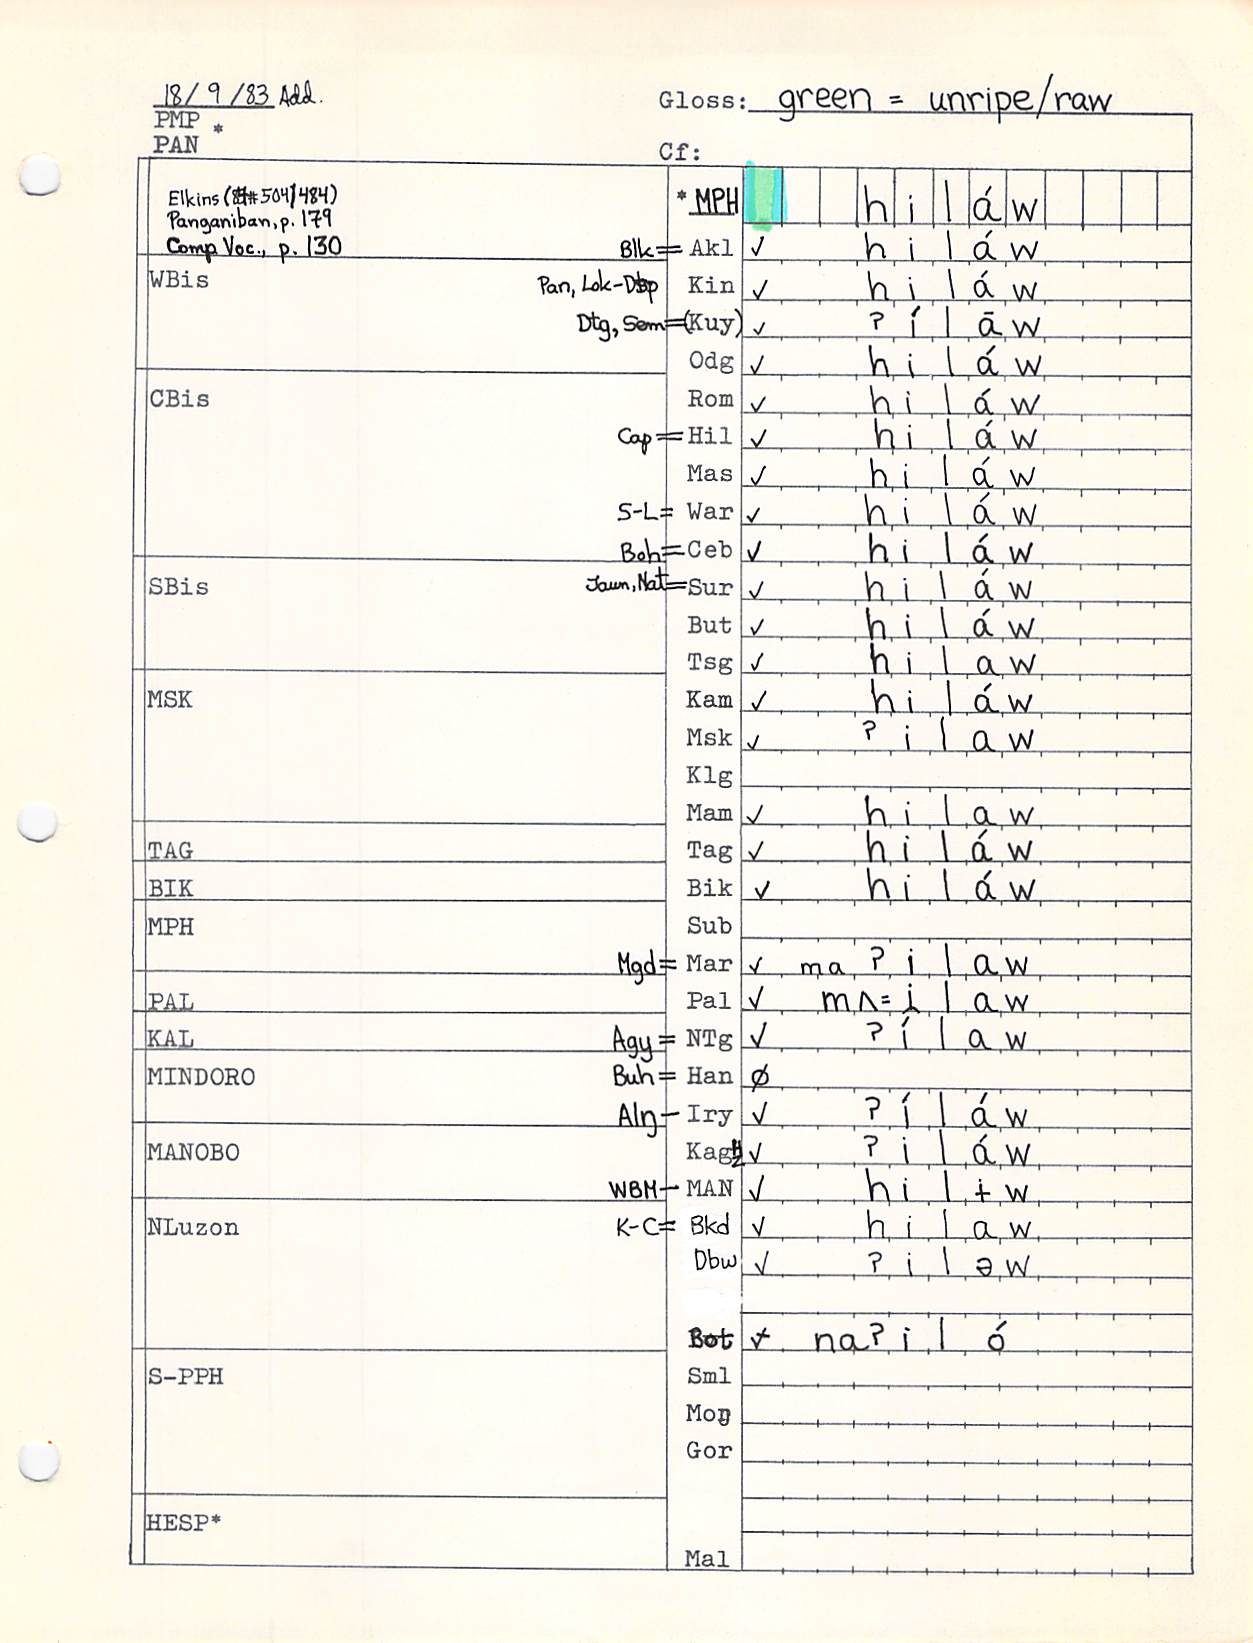 18/9/83 Add.
Gloss: green = unripe/raw
PMP *
PAN
Cf:
Elkins (##504/484)
Panganiban, p. 179
Comp Voc., p. 130
*MPH h i l á w
Blk= Akl ✓ h i l á w
WBis Pan, Lok-Dsp Kin ✓ h i l á w
Dtg, Sem=(Kuy) ✓ ʔ í l ā w
Odg ✓ h i l á w
CBis Rom ✓ h i l á w
Cap= Hil ✓ h i l á w
Mas ✓ h i l á w
S-L= War ✓ h i l á w
Boh= Ceb ✓ h i l á w
SBis Jaun, Nat= Sur ✓ h i l á w
But ✓ h i l á w
Tsg ✓ h i l a w
MSK Kam ✓ h i l á w
Msk ✓ ʔ i l a w
Klg
Mam ✓ h i l a w
TAG Tag ✓ h i l á w
BIK Bik ✓ h i l á w
MPH Sub
Mgd= Mar ✓ ma ʔ i l a w
PAL Pal ✓ mʌ= i l a w
KAL Agy= NTg ✓ ʔ í l a w
MINDORO Buh= Han ø
Alŋ- Iry ✓ ʔ í l á w
MANOBO Kag ✓ ʔ i l á w
WBM- MAN ✓ h i l ɨ w
NLuzon K-C= Bkd ✓ h i l a w
Dbw ✓ ʔ i l ə w
Bot ✓ na ʔ i l ó
S-PPH Sml
Moŋ
Gor
HESP*
Mal